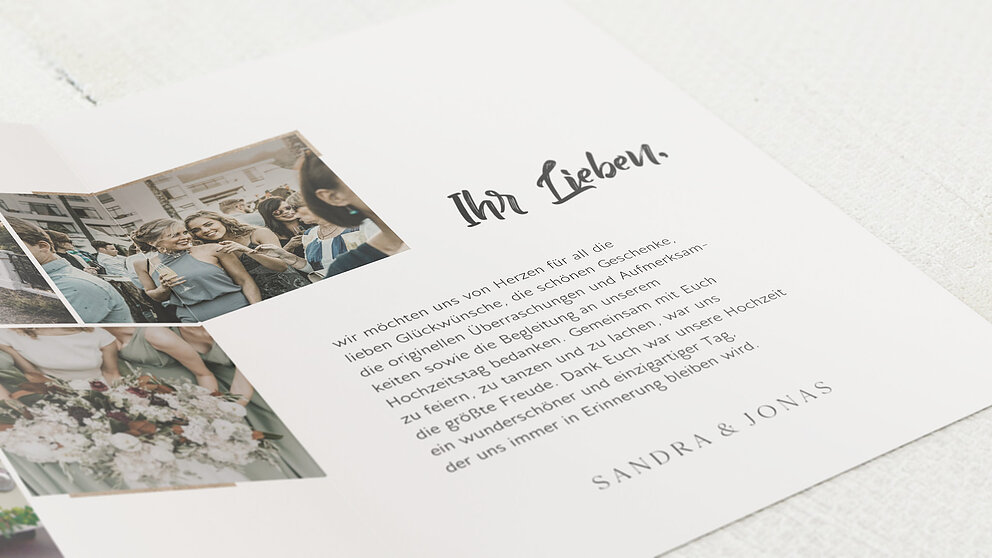 Ihr Lieben.
wir möchten uns von Herzen für all die
lieben Glückwünsche, die schönen Geschenke,
die originellen Überraschungen und Aufmerksam-
keiten sowie die Begleitung an unserem
Hochzeitstag bedanken. Gemeinsam mit Euch
zu feiern, zu tanzen und zu lachen, war uns
die größte Freude. Dank Euch war unsere Hochzeit
ein wunderschöner und einzigartiger Tag,
der uns immer in Erinnerung bleiben wird.
SANDRA & JONAS